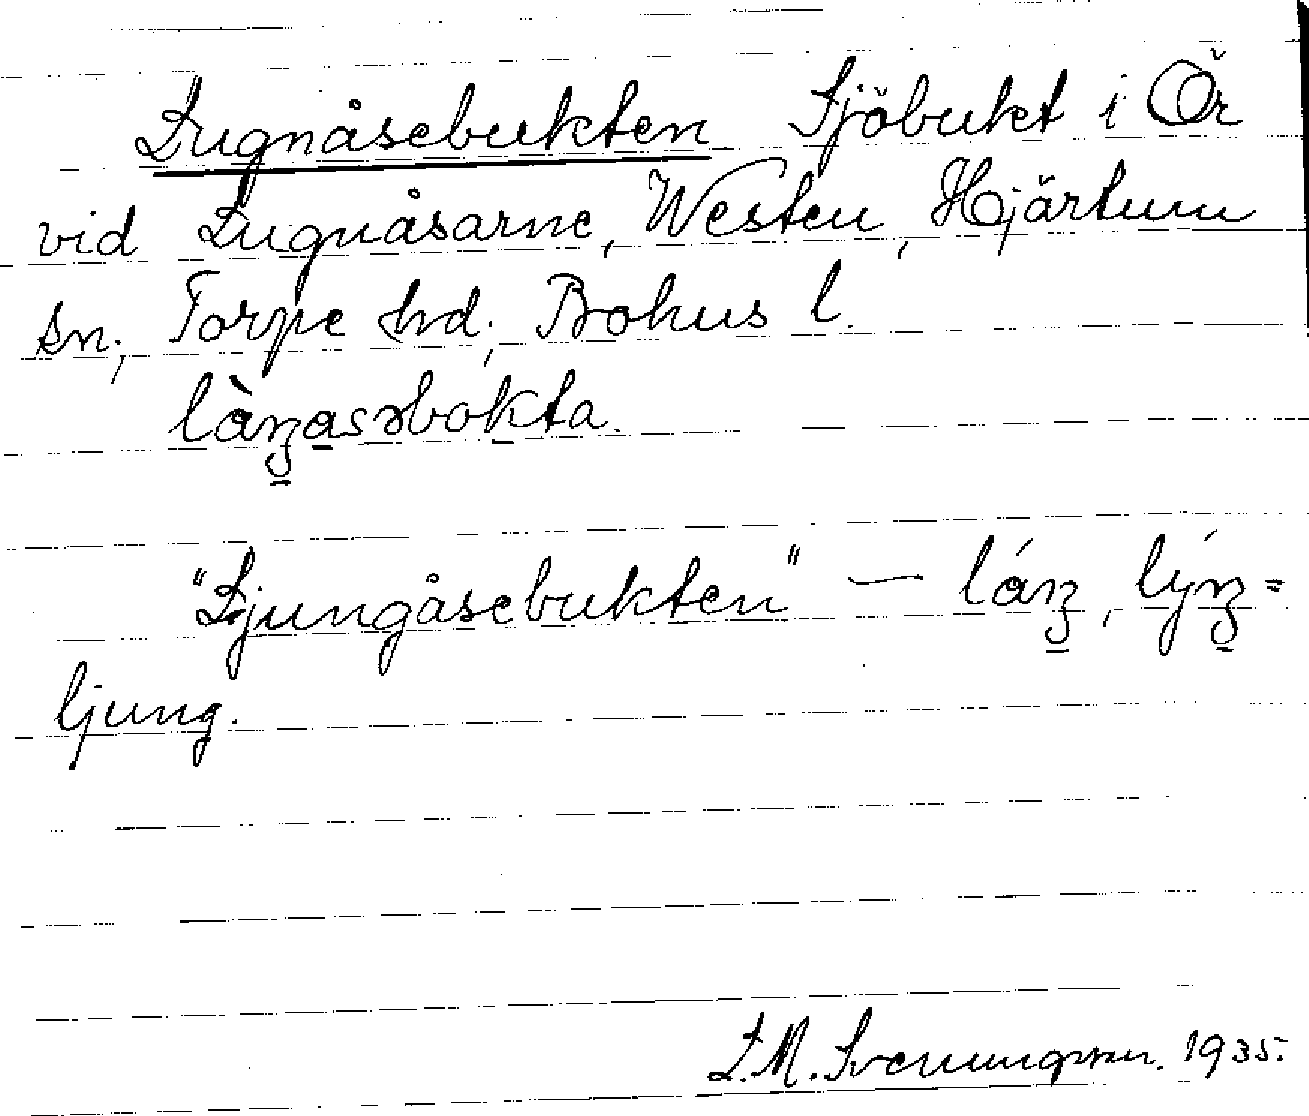 Lugnåsebukten Sjöbukt i Ör
vid Lugnåsarne, Westen, Hjärtum
sn; Torpe hrd; Bohus l.
làŋasəbokta.
"Ljungåsebukten" — láŋ, lýŋ =
ljung.
L.M. Svenungsson. 1935.